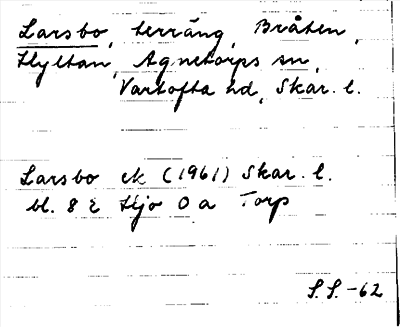 Larsbo, terräng, Bråten,
Hyltan, Agnetorps sn,
Vartofta hd, Skar. l.
Larsbo ek (1961) Skar. l.
bl. 8 E Hjo 0 a Torp
S.S. -62